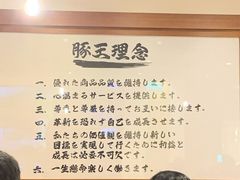 豚王理念
一、優れた商品品質を維持します。
二、心温まるサービスを提供します。
三、尊厳と尊敬を持ってお互いに接します。
四、革新を恐れず自己を成長させます。
五、私たちの価値観を維持し新しい
目標を実現して行くために利益と
成長は必要不可欠です。
六、一生懸命楽しく働きます。